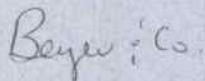 Beyer & Co.